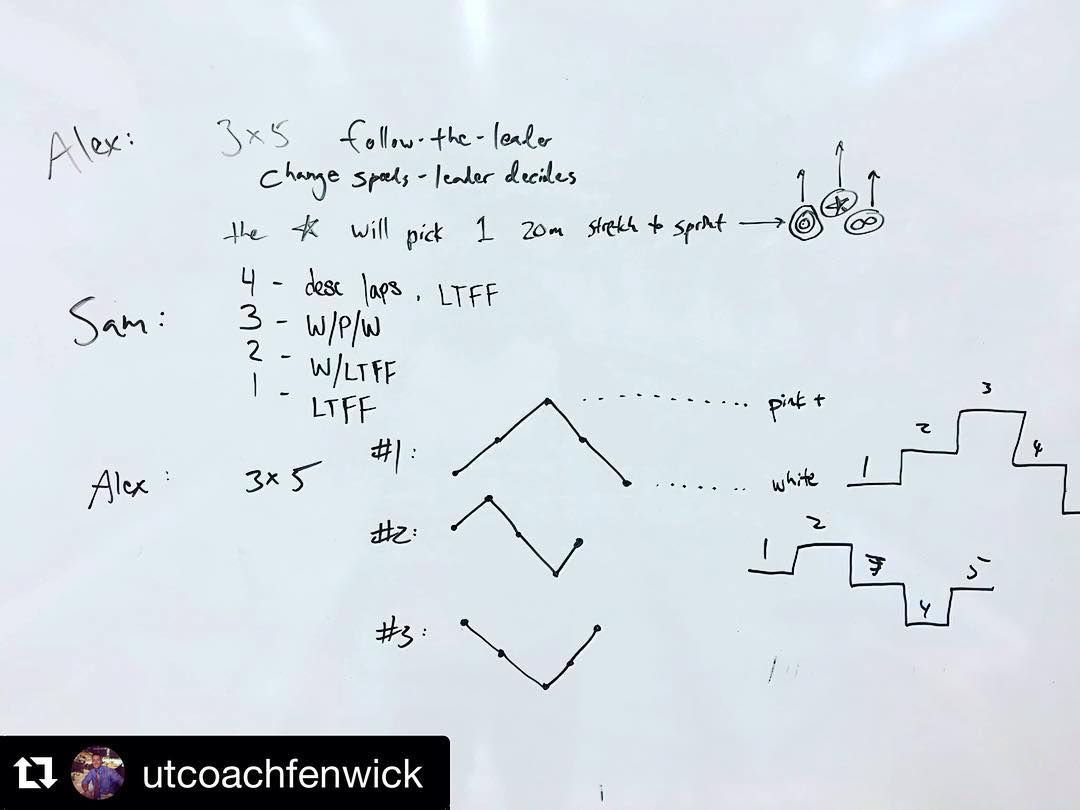 Alex: 3×5 follow-the-leader
change speeds-leader decides
the ☆ will pick 1 20m stretch to sprint
Sam: 4 - desc laps, LTFF
3 - W/P/W
2 - W/LTFF
1 - LTFF
#1: pink +
white
1 2 3 4
Alex: 3×5
#2:
1 2 3 4 5
#3:
utcoachfenwick